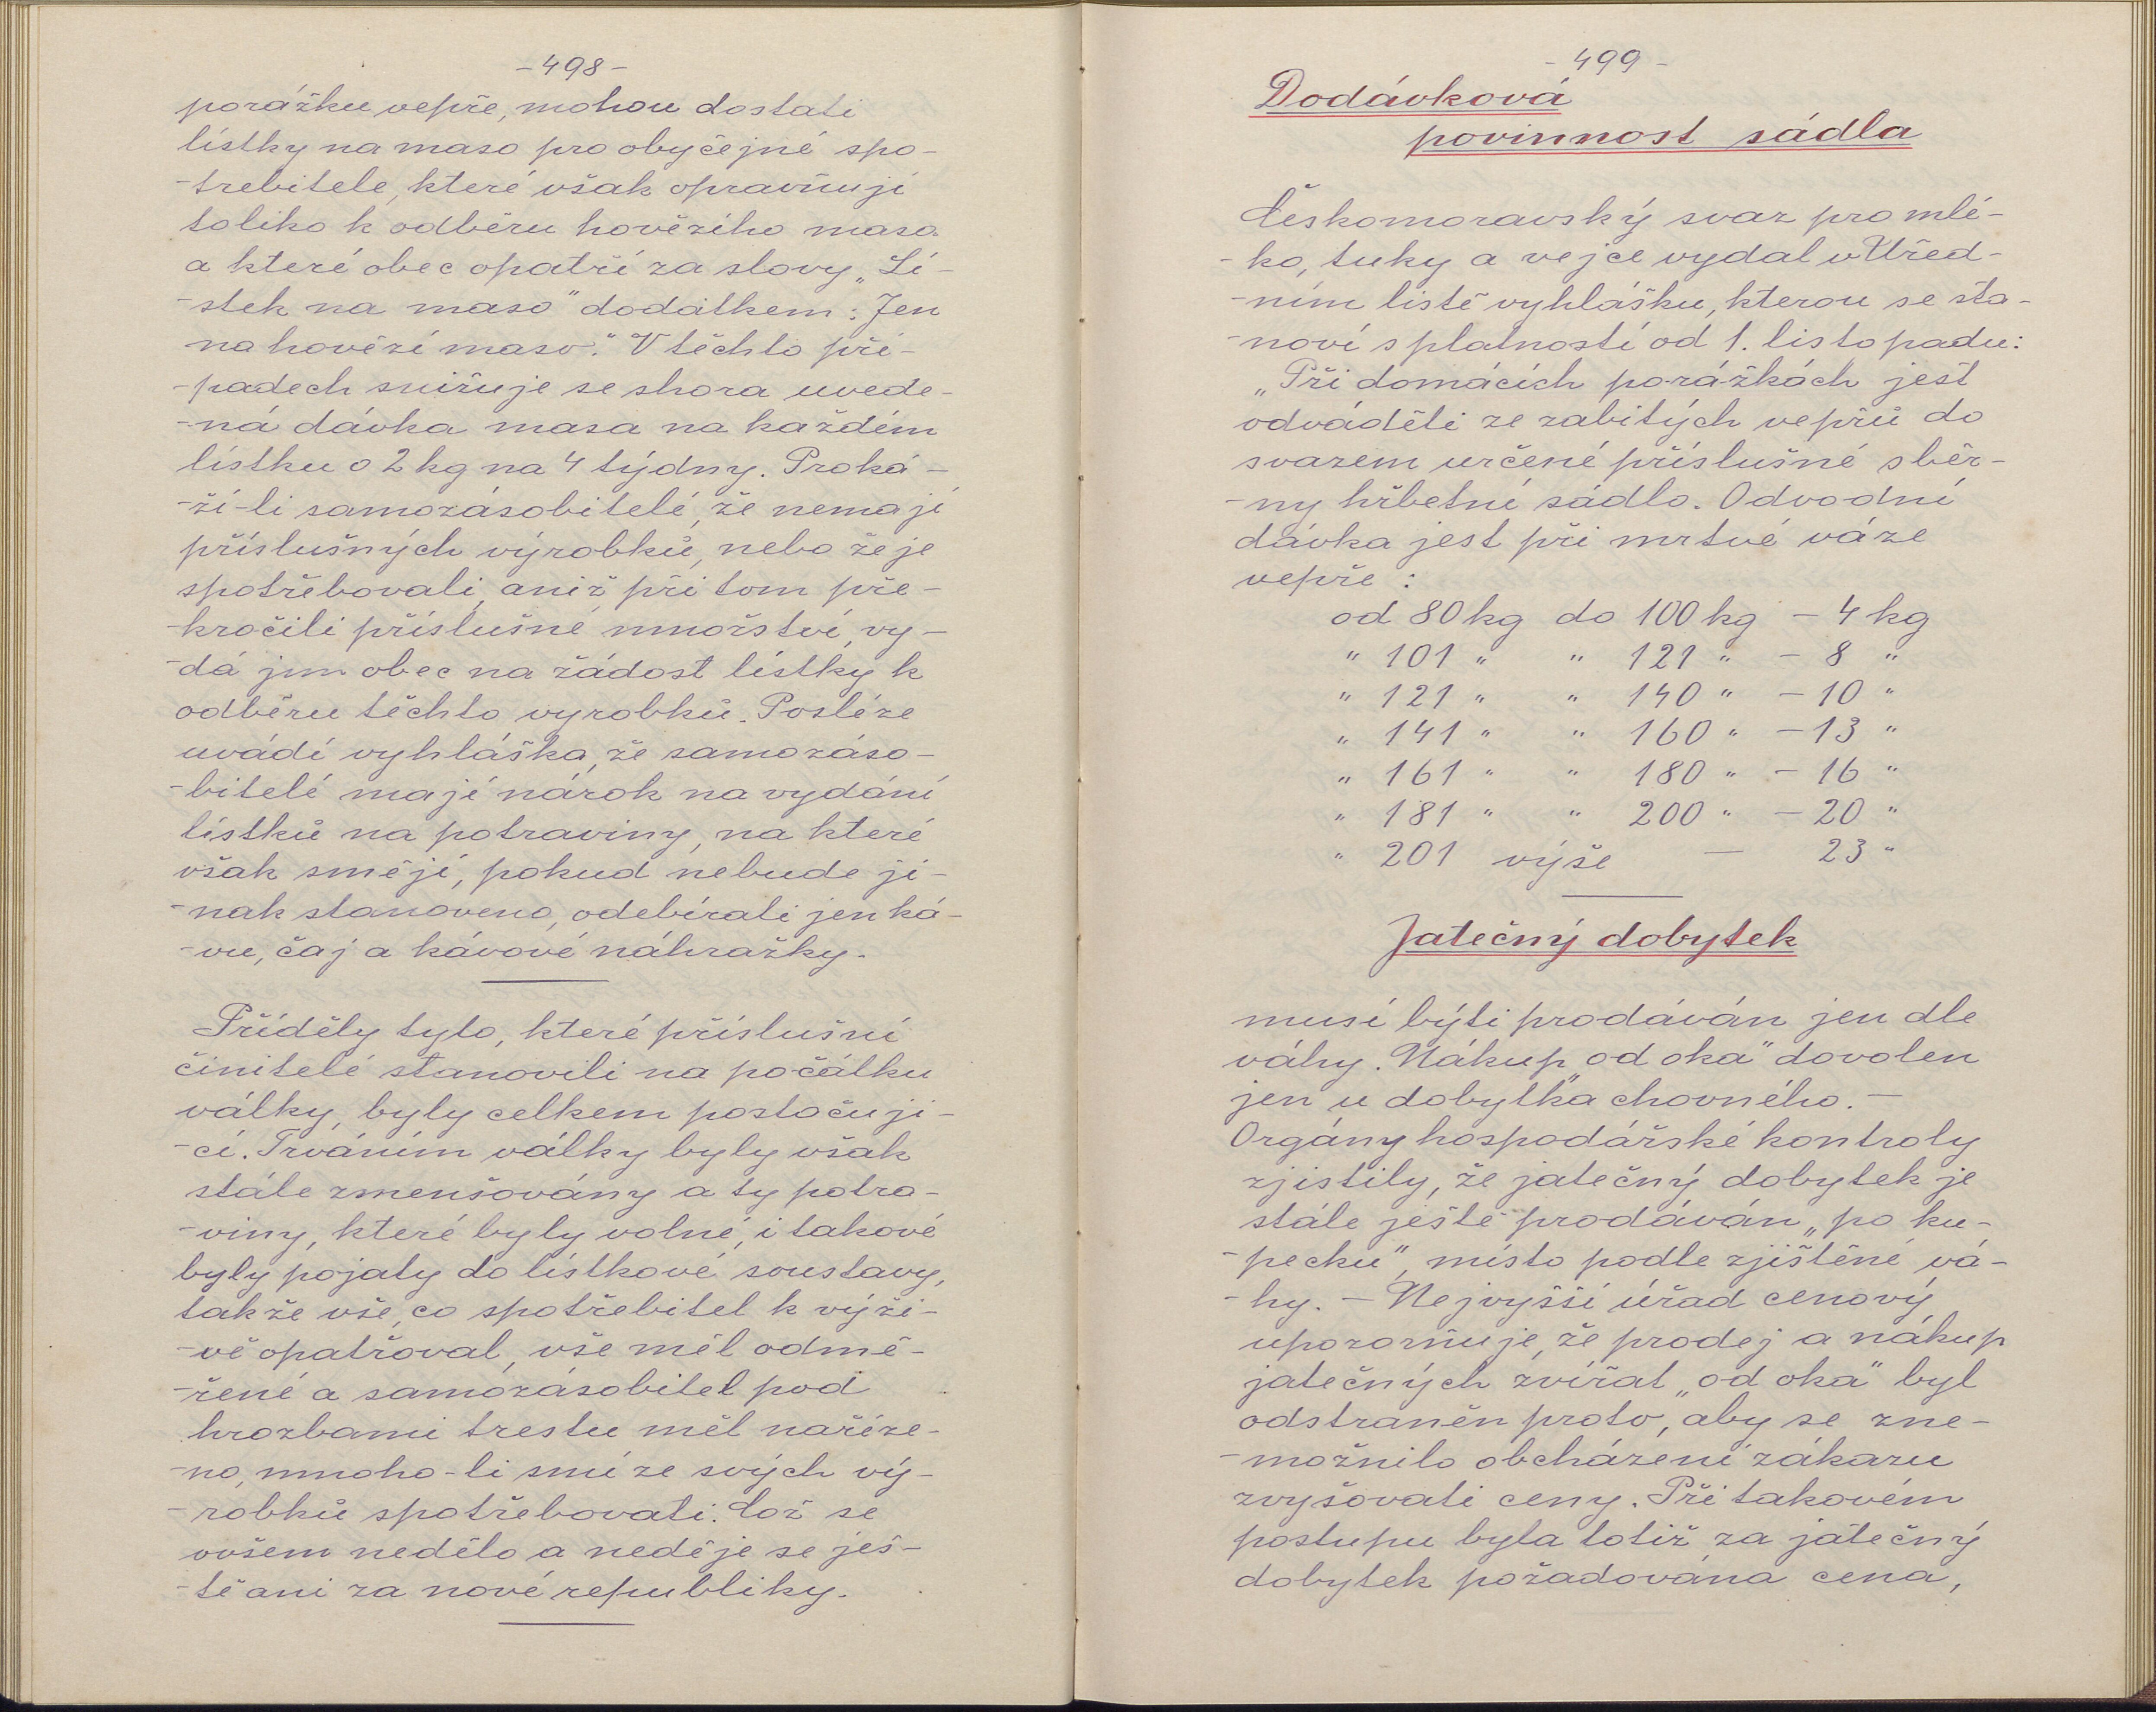 -498-
porážku vepře, mohou dostati
lístky na maso pro obyčejné spo-
-trebitele, které však opravňují
toliko k odběru hovězího masa
a které obec opatří za slovy „Lí-
-stek na maso" dodatkem: Jen
na hovězí maso." V těchto pří-
-padech snižuje se shora uvede-
-ná dávka masa na každém
lístku o 2 kg na 4 týdny. Proká-
-ží-li samozásobitelé, že nemají
příslušných výrobků, nebo že je
spotřebovali, aniž při tom pře-
-kročili příslušné množství, vy-
-dá jim obec na žádost lístky k
odběru těchto výrobků. Posléze
uvádí vyhláška, že samozáso-
-bitelé mají nárok na vydání
lístků na potraviny, na které
však smějí, pokud nebude ji-
-nak stanoveno, odebírati jen ká-
-vu, čaj a kávové náhražky.
Příděly tyto, které příslušní
činitelé stanovili na počátku
války, byly celkem postačují-
-cí. Trváním války byly však
stále zmenšovány a ty potra-
-viny, které byly volné, i takové
byly pojaty do lístkové soustavy,
takže vše, co spotřebitel k výži-
-vě opatřoval, vše měl odmě-
-řené a samozásobitel pod
hrozbami trestu měl naříze-
-no, mnoho-li smí ze svých vý-
-robků spotřebovati. Což se
ovšem nedělo a neděje se ješ-
-tě ani za nové republiky.
-499-
Dodávková
povinnost sádla
Českomoravský svaz pro mlé-
-ko, tuky a vejce vydal v Úřed-
-ním listě vyhlášku, kterou se sta-
-noví s platností od 1. listopadu:
„Při domácích porážkách jest
odváděti ze zabitých vepřů do
svazem určené příslušné sběr-
-ny hřbetní sádlo. Odvodní
dávka jest při mrtvé váze
vepře:
od 80 kg do 100 kg - 4 kg
" 101 " " 121 " - 8 "
" 121 " " 140 " - 10 "
" 141 " " 160 " - 13 "
" 161 " " 180 " - 16 "
" 181 " " 200 " - 20 "
" 201 výše - 23 "
Jatečný dobytek
musí býti prodáván jen dle
váhy. Nákup „od oka" dovolen
jen u dobytka chovného. -
Orgány hospodářské kontroly
zjistily, že jatečný dobytek je
stále ještě prodáván „po ku-
-pecku", místo podle zjištěné vá-
-hy. - Nejvyšší úřad cenový
upozorňuje, že prodej a nákup
jatečných zvířat „od oka" byl
odstraněn proto, aby se zne-
-možnilo obcházení zákazu
zvyšovati ceny. Při takovém
postupu byla totiž za jatečný
dobytek požadována cena,